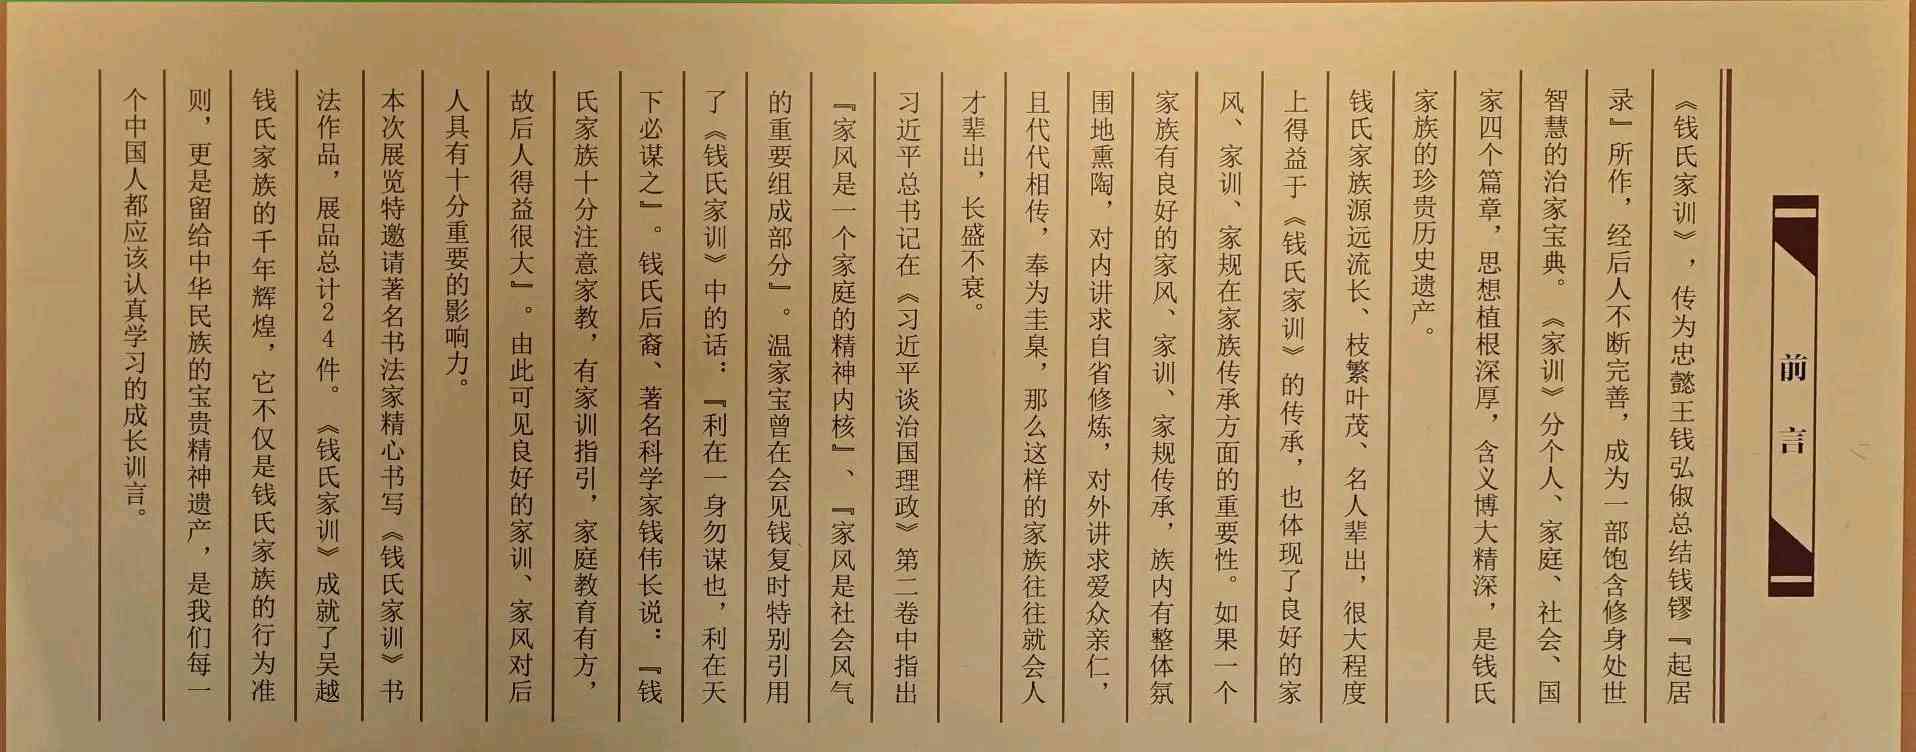 前言
《钱氏家训》，传为忠懿王钱弘俶总结钱镠『起居
录』所作，经后人不断完善，成为一部饱含修身处世
智慧的治家宝典。《家训》分个人、家庭、社会、国
家四个篇章，思想植根深厚，含义博大精深，是钱氏
家族的珍贵历史遗产。
钱氏家族源远流长、枝繁叶茂、名人辈出，很大程度
上得益于《钱氏家训》的传承，也体现了良好的家
风、家训、家规在家族传承方面的重要性。如果一个
家族有良好的家风、家训、家规传承，族内有整体氛
围地熏陶，对内讲求自省修炼，对外讲求爱众亲仁，
且代代相传，奉为圭臬，那么这样的家族往往就会人
才辈出，长盛不衰。
习近平总书记在《习近平谈治国理政》第二卷中指出
『家风是一个家庭的精神内核』、『家风是社会风气
的重要组成部分』。温家宝曾在会见钱复时特别引用
了《钱氏家训》中的话：『利在一身勿谋也，利在天
下必谋之』。钱氏后裔、著名科学家钱伟长说：『钱
氏家族十分注意家教，有家训指引，家庭教育有方，
故后人得益很大』。由此可见良好的家训、家风对后
人具有十分重要的影响力。
本次展览特邀请著名书法家精心书写《钱氏家训》书
法作品，展品总计24件。《钱氏家训》成就了吴越
钱氏家族的千年辉煌，它不仅是钱氏家族的行为准
则，更是留给中华民族的宝贵精神遗产，是我们每一
个中国人都应该认真学习的成长训言。